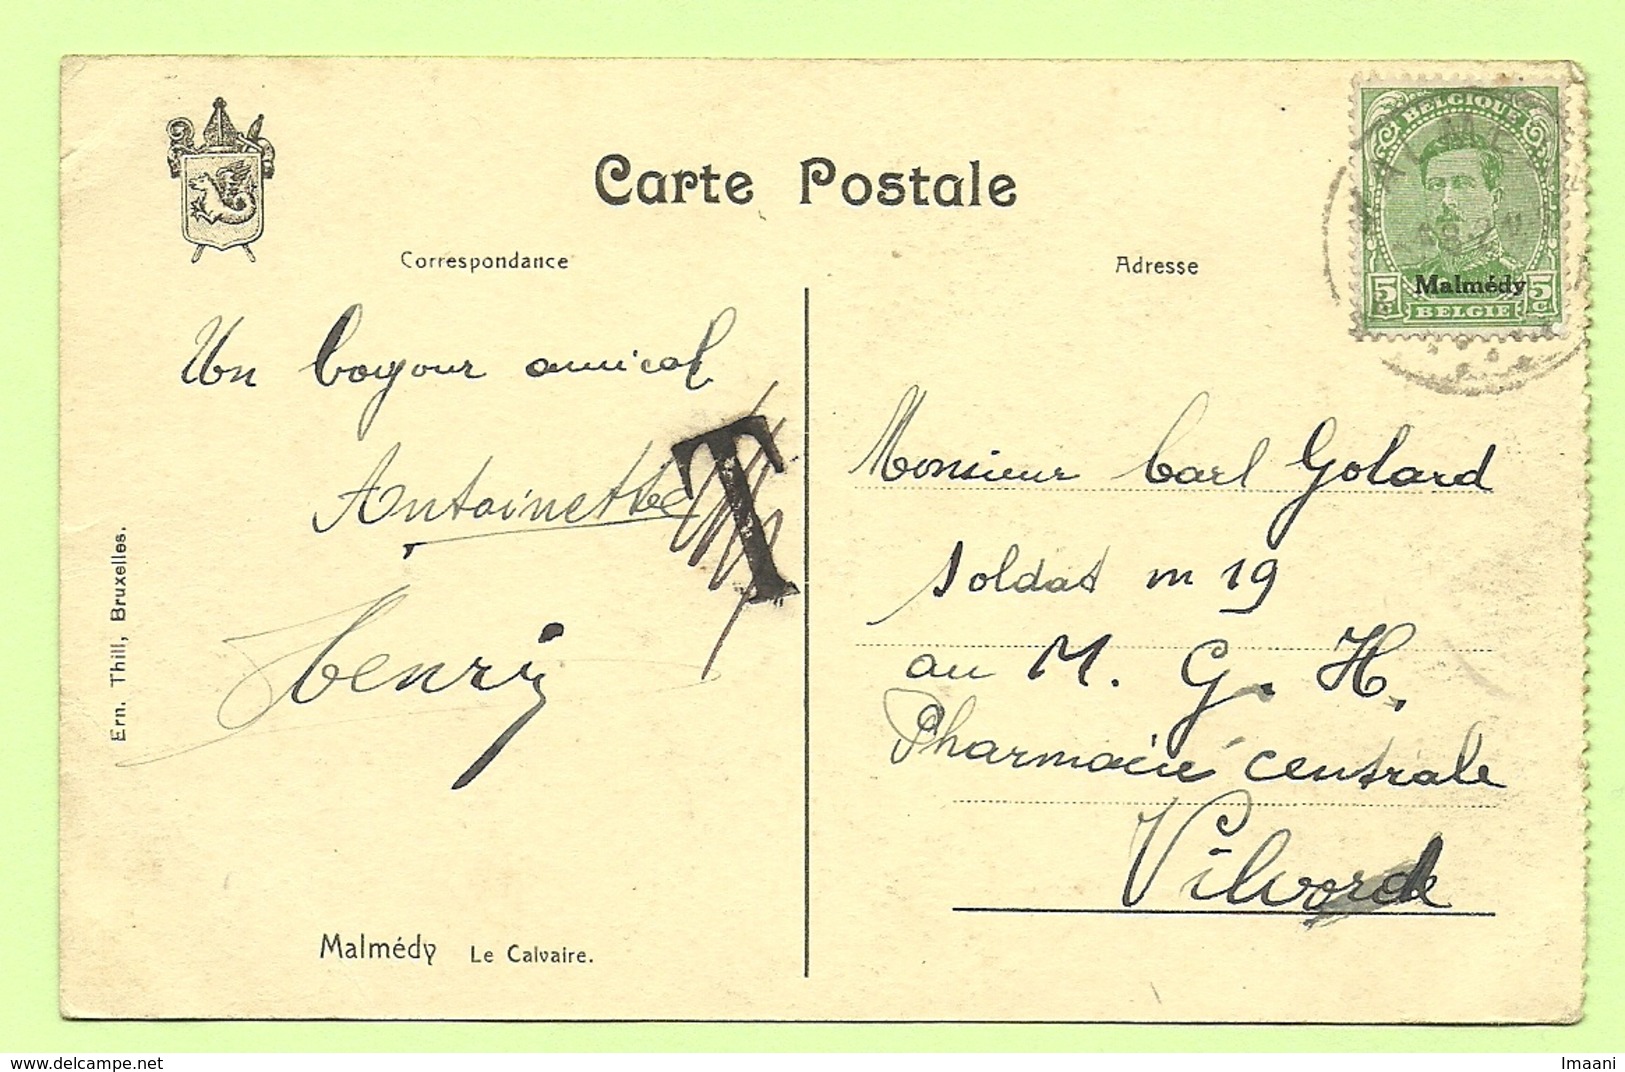 Carte Postale
Correspondance
Adresse
BELGIQUE
5
5
C.
Malmédy
BELGIE
Un boyour amical
Antoinette
Henri
T
Monsieur Carl Golard
soldat m 19
au M. G. H.
Pharmacie centrale
Vilvorde
Malmédy Le Calvaire.
Ern. Thill, Bruxelles.
Imaani